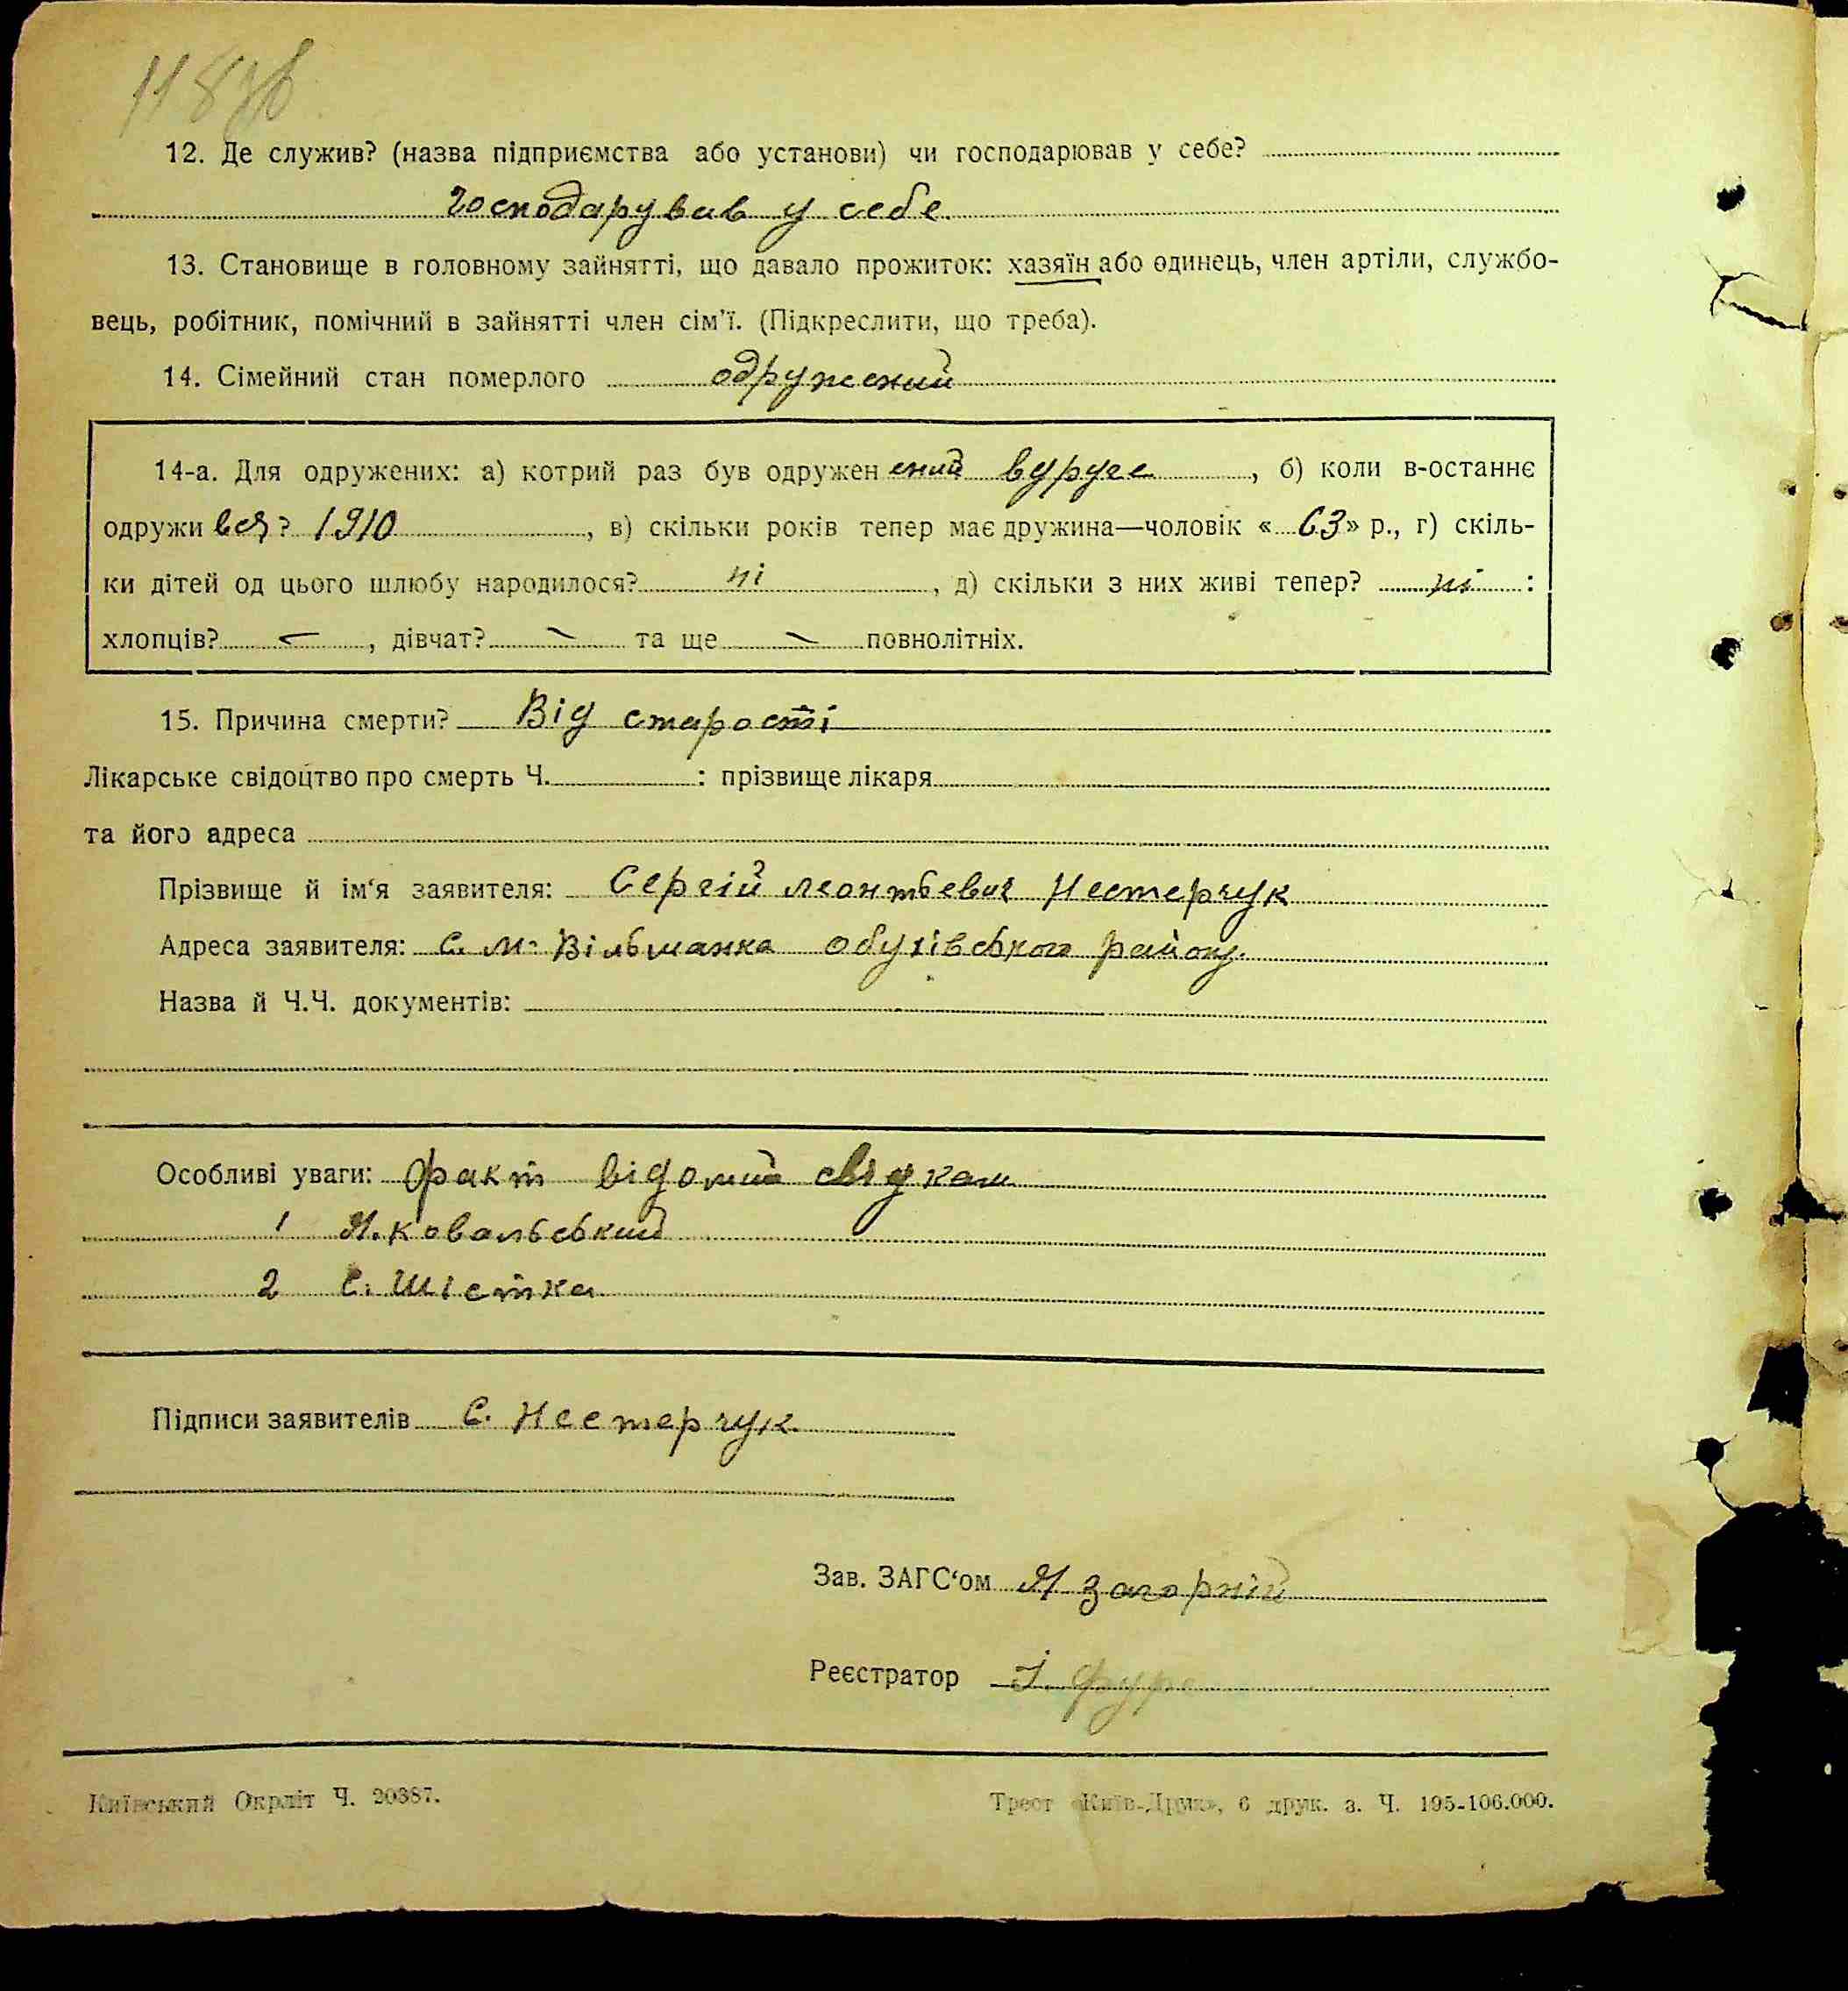 118
12. Де служив? (назва підприємства або установи) чи господарював у себе?
господарував у себе.
13. Становище в головному зайнятті, що давало прожиток: хазяїн або одинець, член артіли, службо-
вець, робітник, помічний в зайнятті член сім'ї. (Підкреслити, що треба).
14. Сімейний стан померлого одружений
14-а. Для одружених: а) котрий раз був одружен ений вдруге, б) коли в-останнє
одружи вся? 1910, в) скільки років тепер має дружина—чоловік «63» р., г) скіль-
ки дітей од цього шлюбу народилося? ні, д) скільки з них живі тепер? ні :
хлопців? —, дівчат? — та ще — повнолітніх.
15. Причина смерти? Від старості
Лікарське свідоцтво про смерть Ч. : прізвище лікаря
та його адреса
Прізвище й ім'я заявителя: Сергій леонтьевич Нестерчук
Адреса заявителя: С. М-Вільшанка обухівського району.
Назва й Ч.Ч. документів:
Особливі уваги: Факт відомий свідкам
1 Я. Ковальський
2 С. Шістка
Підписи заявителів С. Нестерчук
Зав. ЗАГС'ом Загорній
Реєстратор І.
Київський Окрліт Ч. 20387.
Трест «Київ-Друк», 6 друк. з. Ч. 195-106.000.